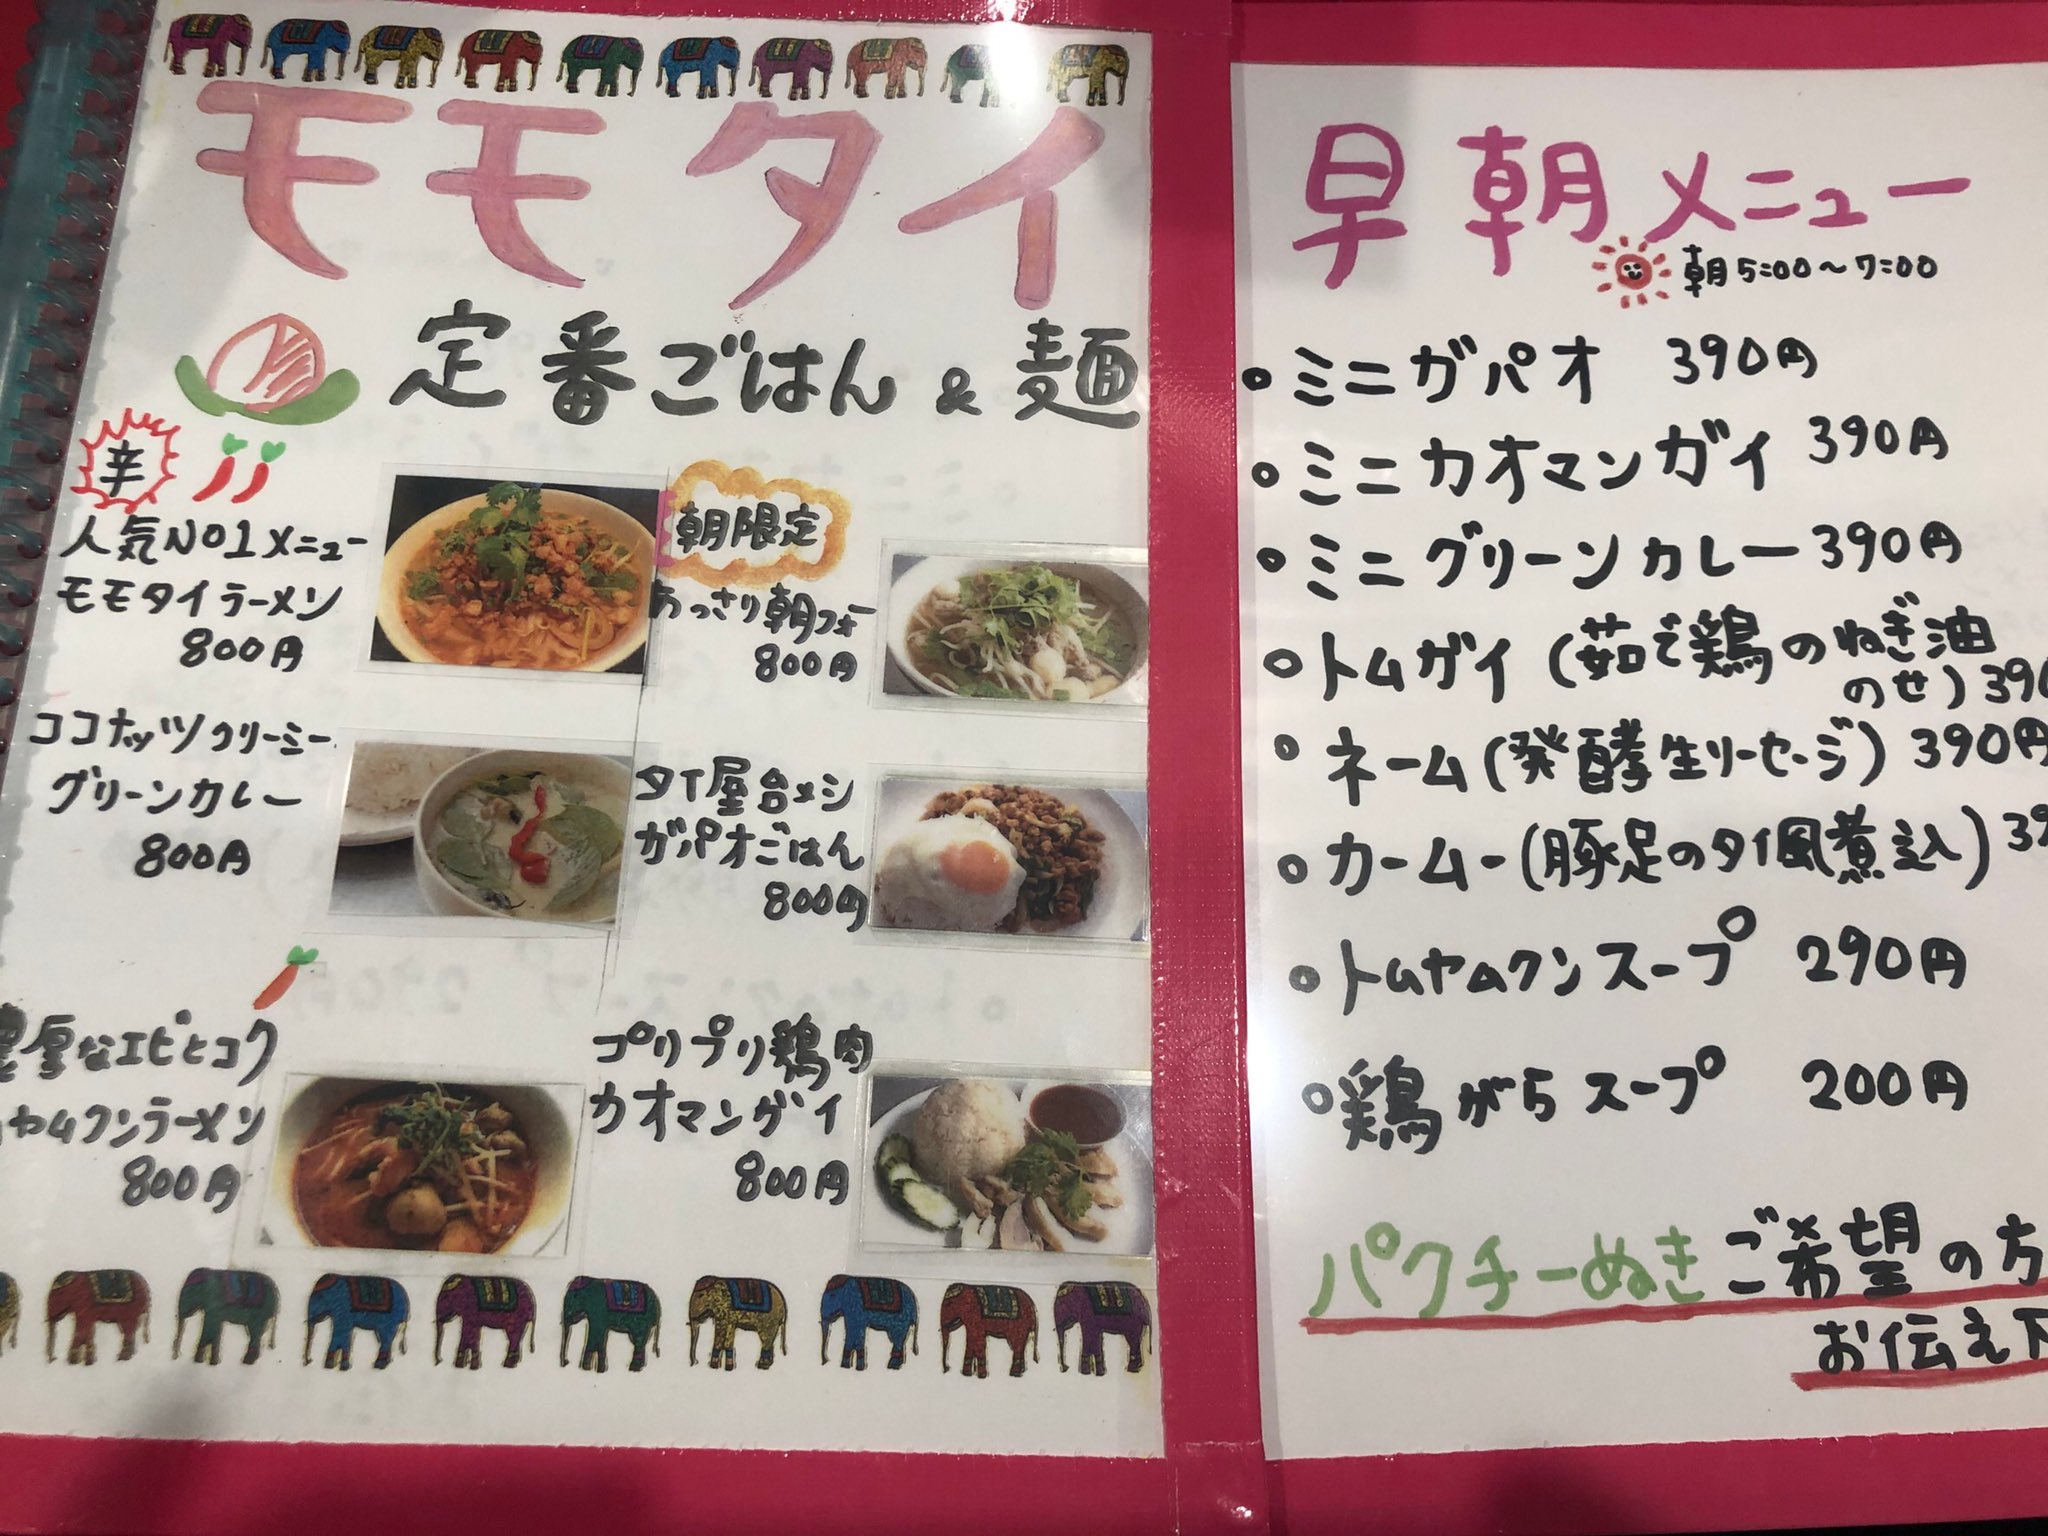 モモタイ
定番ごはん&麺
辛
人気NO1メニュー
モモタイラーメン
800円
朝限定
あっさり朝フォー
800円
ココナッツクリーミー
グリーンカレー
800円
タイ屋台メシ
ガパオごはん
800円
厚なエビとコク
ヤムクンラーメン
800円
プリプリ鶏肉
カオマンガイ
800円
早朝メニュー
朝5:00〜7:00
ミニガパオ 390円
ミニカオマンガイ 390円
ミニグリーンカレー 390円
トムガイ(茹で鶏のねぎ油
のせ) 390
ネーム(発酵生ソーセージ) 390円
カームー(豚足のタイ風煮込) 39
トムヤムクンスープ 290円
鶏がらスープ 200円
パクチーぬきご希望の方
お伝え下